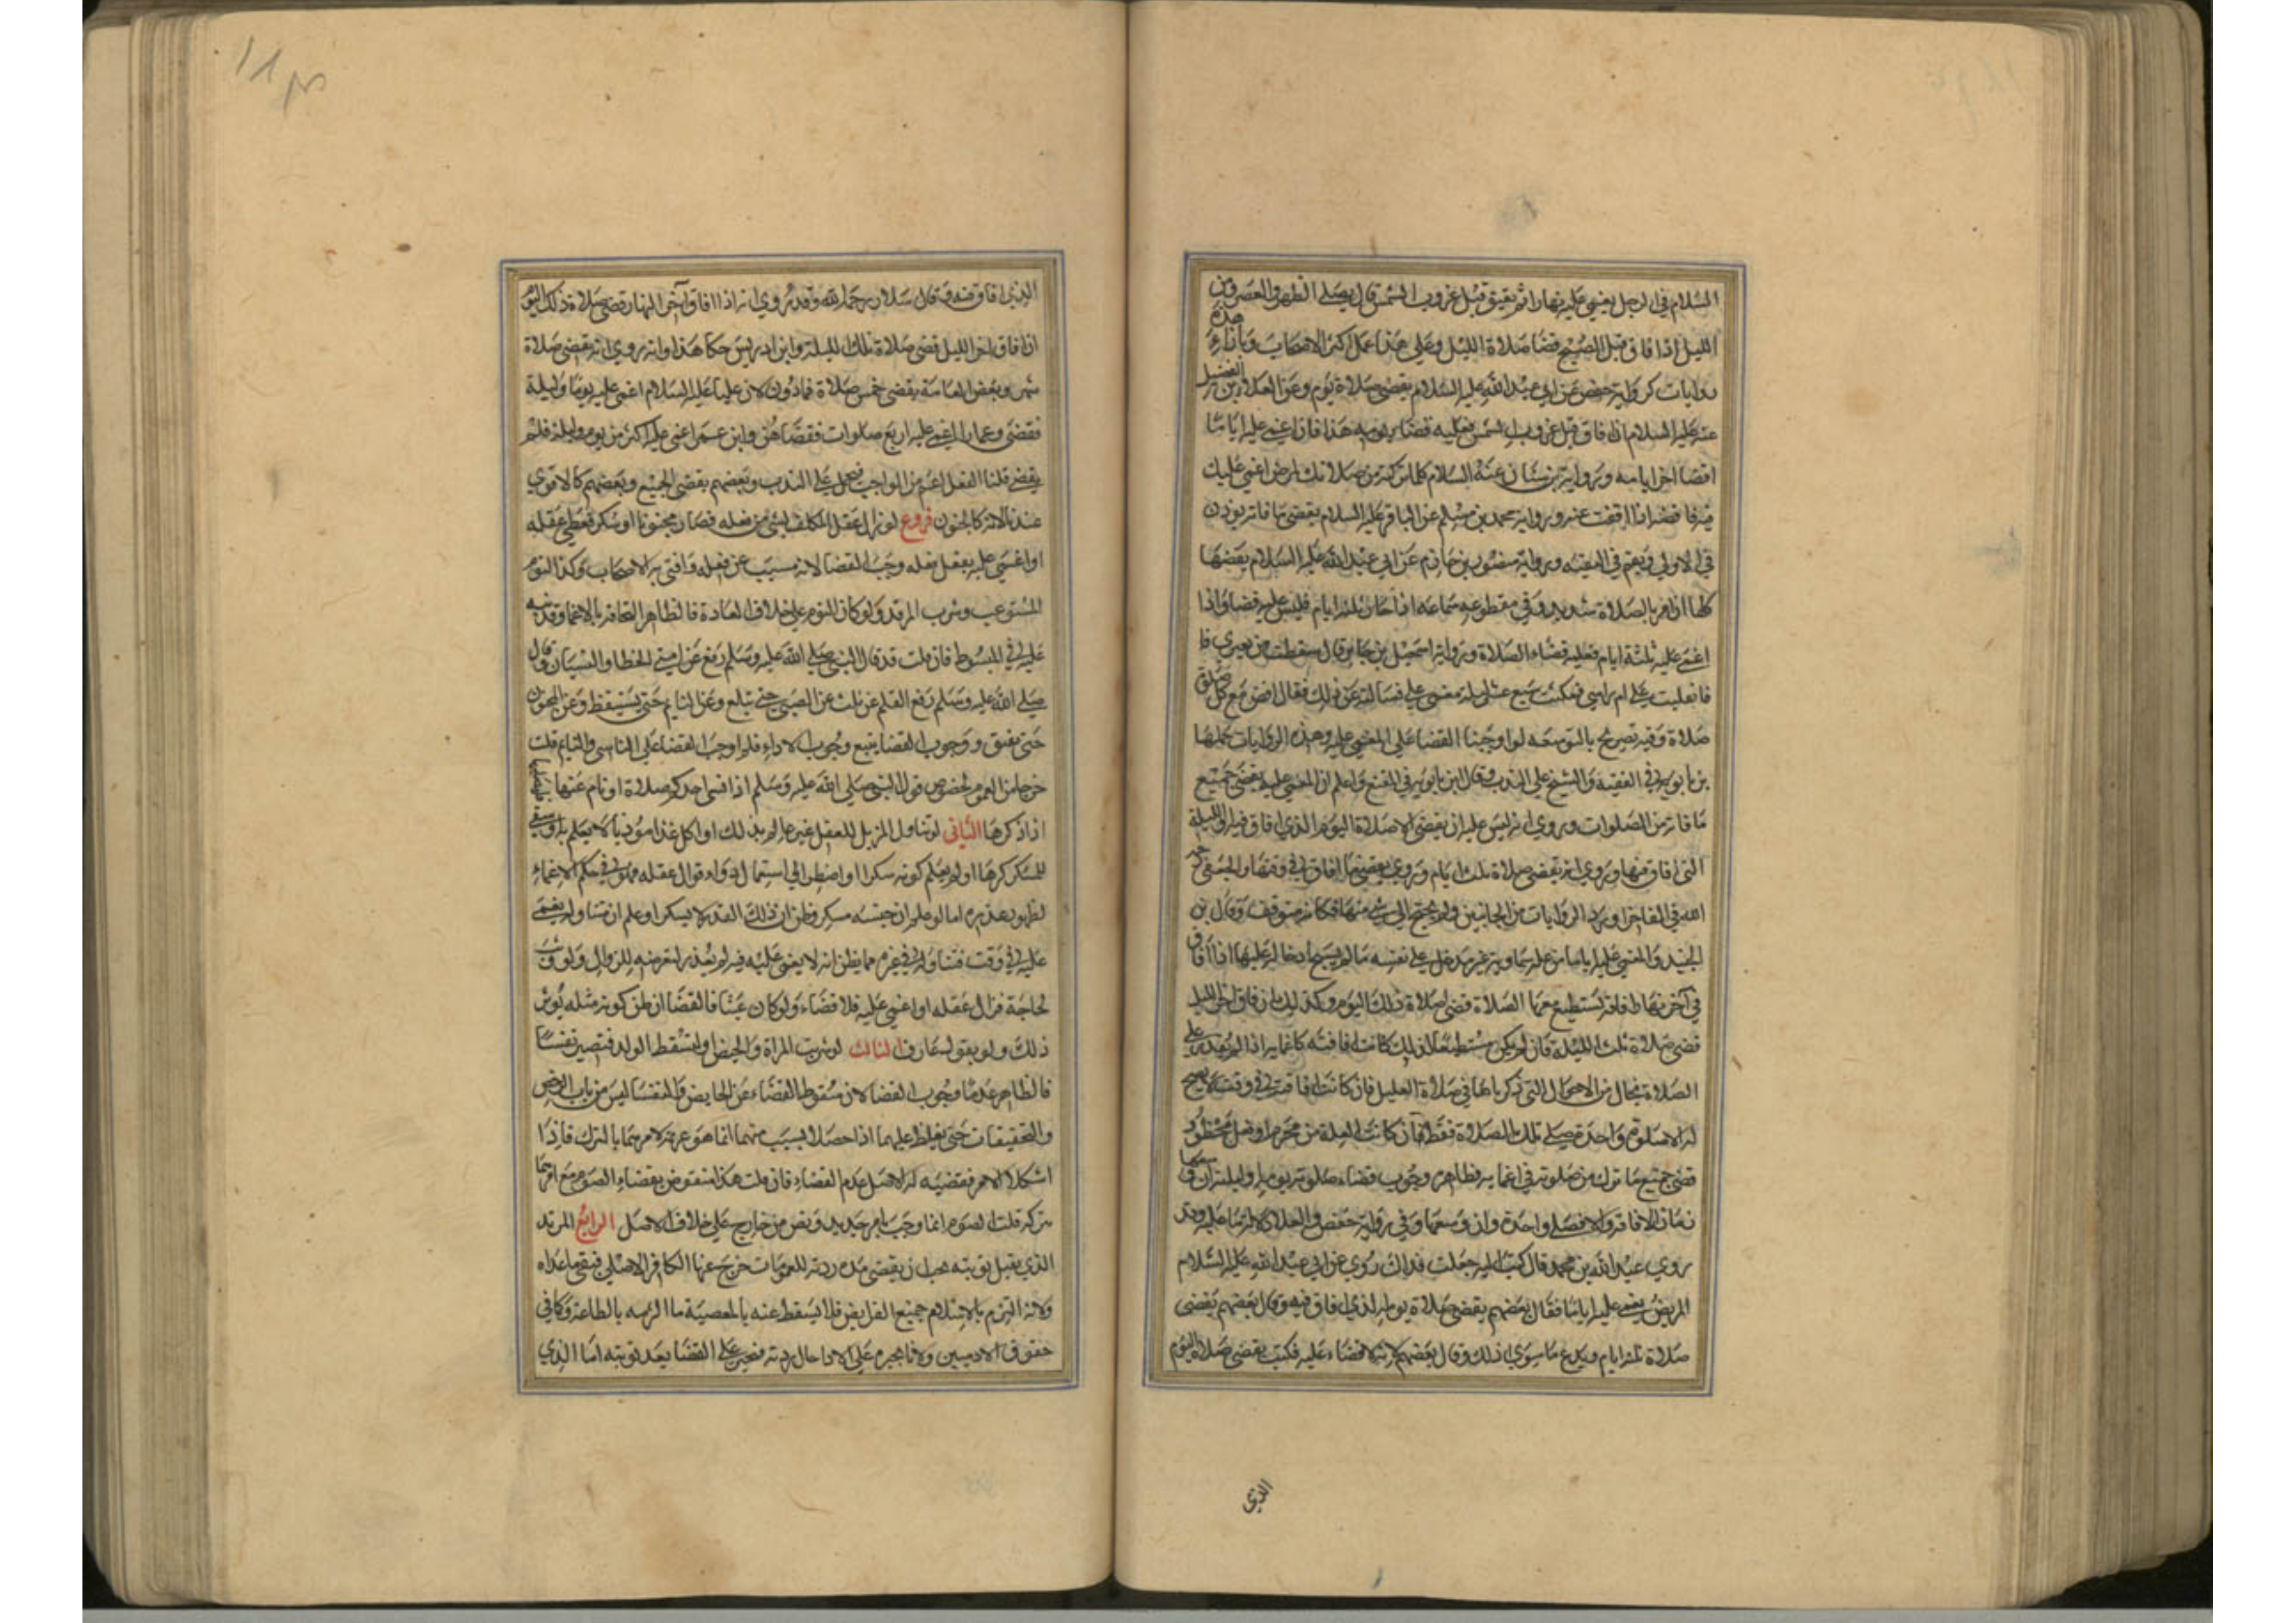 السلام في الرجل يغمي عليه نهارا ثم يفيق قبل غروب الشمس قال يصلي الظهر والعصر ومن
الليل اذا افاق قبل الصبح قضا صلاة الليل وعلي هذا عمل اكثر الاصحاب وبازاء هذه
روايات كرواية حفص عن ابي عبد الله عليه السلام يقضي صلاة يوم وعن العلا بن الفضيل
عنه عليه السلام ان افاق قبل غروب الشمس فعليه قضا يومه هذا فان اغمي عليه اياما
اخر ايامه وبرواية بن سنان عنه السلام كلما تركته من صلاتك لمرض اغمي عليك
فيه فاقضه اذا افقت عنه وبرواية محمد بن مسلم عن الباقر عليه السلام يقضي ما فاته يوذن
في الاولي ويقيم في البقيه وبرواية منصور بن حازم عن ابي عبد الله عليه السلام يقضيها
كلها ان امر الصلاة شديد وفي مقطوعه سماعه اذا جاز ثلثه ايام فليس عليه قضا واذا
اغمي عليه ثلثة ايام فعليه قضاء الصلاة وبرواية اسمعيل بن جابر قال سقطت من بعيري
فانقلبت علي ام راسي فمكثت سبع عشر ليلة مغمي علي فسالته عن ذلك فقال اقض مع كل
صلاة وفيه تصريح بالتوسعه لو اوجبنا القضا علي المغمي عليه وهذه الروايات حملها
بن بابويه في الفقيه والشيخ علي الندب وقال ابن بابويه في المقنع واعلم ان المغمي عليه يقضي جميع
ما فاته من الصلوات وروي انه ليس عليه ان يقضي الا صلاة اليوم الذي افاق فيه او الليلة
التي افاق فيها وروي انه يقضي صلاة ثلث ايام وروي يقضي ما افاق في وقتها والجعفي رحمه
الله في الفاخر اورد الروايات من الجانبين ولم يجنح الي شي منها فكانه متوقف وقال بن
الجنيد والمغمي عليه اياما من علة سماوية غير مدخل علي نفسه ما لم يسبح ادخاله عليها اذا افاق
في آخر نهار افاقة يستطيع معها الصلاة قضي صلاة ذلك اليوم وكذلك ان افاق اخر الليل
قضي صلاة تلك الليلة فان لم يكن مستطيعا لذلك كانت افاقته كاغمائه اذا لم يقدر علي
الصلاة بحال من الاحوال التي ذكرناها في صلاة العليل فان كانت افاقته في وقت لا يصح
له الا صلوة واحدة صلي تلك الصلاة فقط فان كانت العلة من محرم او فعل محظور
قضي جميع ما ترك من صلوته في اغمائه وظاهره وجوب قضاء صلوة يومه او ليلته ان وسعها
زمان الافاقة والا فصلاة واحدة وان وسعها وفي رواية حفص والعلا دلالة ما عليه وقد
روي عبد الله بن محمد قال كتبت اليه جعلت فداك روي عن ابي عبد الله عليه السلام
المريض يغمي عليه اياما فقال بعضهم يقضي صلاة يومه الذي افاق فيه وقال بعضهم يقضي
صلاة ثلثه ايام ويدع ما سوي ذلك وقال بعضهم لانه لا قضاء عليه فكتب يقضي صلاة اليوم
الذي
الذي افاق فيه وقال سلار رحمه الله وقد روي انه اذا افاق آخر النهار قضي صلاة ذلك اليوم
ان افاق اخر الليل قضي صلاة تلك الليلة وابن ادريس حكا هذا وانه روي انه يقضي صلاة
شهر وبعض العامة يقضي خمس صلاة فما دون لان عليا عليه السلام اغمي عليه يوما وليلة
فقضي وعمار اغمي عليه اربع صلوات فقضاهن وابن عمر اغمي عليه اكثر من يوم وليلة فلم
يقض قلنا الفعل اعم من الواجب فيحمل علي الندب وبعضهم يقضي الجميع وبعضهم كالاقوي
عندنا لانه كالجنون فروع لو زال عقل المكلف بشي من فعله فصار مجنونا او سكر فغطي عقله
او اغمي عليه بفعل فعله وجب القضا لانه مسبب عن فعله وافتي به الاصحاب وكذا النوم
المستوعب وشرب المرقد ولو كان النوم علي خلاف العادة فالظاهر التحاقه بالاغما وقد نبه
عليه في المبسوط فان قلت قد قال النبي صلي الله عليه وسلم رفع عن امتي الخطا والنسيان وقال
صلي الله عليه وسلم رفع القلم عن ثلث عن الصبي حتي يبلع وعن النايم حتي يستيقظ وعن المجنون
حتي يفيق ووجوب القضا يتبع وجوب الاداء فلم اوجب القضا علي الناسي والنايم قلت
خرجا من العموم لخصوص قول النبي صلي الله عليه وسلم اذا نسي احدكم صلاة او نام عنها فليصلها
اذا ذكرها الثاني لو تناول المزيل للعقل غير عالم بذلك او اكل غذا موذيا لا يعلم به او سقي
المسكر كرها او لم يعلم كونه مسكرا او اضطر الي استعمال دواء فزال عقله فهو في حكم الاغماء
لظهور عذره اما لو علم ان جنسه مسكر وظن ان ذلك القدر لا يسكر او علم ان تناوله يغمي
عليه في وقت فتناوله في غيره مما يظن انه لا يغمي عليه فيه لم يعذر لتعرضه للزوال ولو وثب
لحاجة فزال عقله او اغمي عليه فلا قضاء ولو كان عبثا فالقضا ان ظن كونه مثله يوثر
ذلك ولو بقول عارف الثالث لو شربت المراة والحيض او لتسقط الولد فتصير نفسا
فالظاهر عدم وجوب القضا لان سقوط القضاء عن الحايض والنفسا ليس من باب الرخص
والتخفيفات حتي يغلظ عليهما اذا حصلا بسبب منهما انما هو عزيمة لامرهما بالترك فاذا
امتثلا الامر فقضيه له الاصل عدم القضاء فان قلت هذا منقوض بقضاء الصوم مع امرهما
بتركه قلت الصوم انما وجب بامر جديد ونص من خارج علي خلاف الاصل الرابع المرتد
الذي يقبل توبته يجب ان يقضي مدة ردته للعمومات خرج عنها الكافر الاصلي فيبقي ما عداه
ولانه التزم بالاسلام جميع الفرايض فلا يسقط عنه بالمعصية ما الزمه بالطاعة وكافي
حقوق الادميين ولانا نجبره علي الادا حال ردته فنجبره علي القضا بعد توبته اما الذي